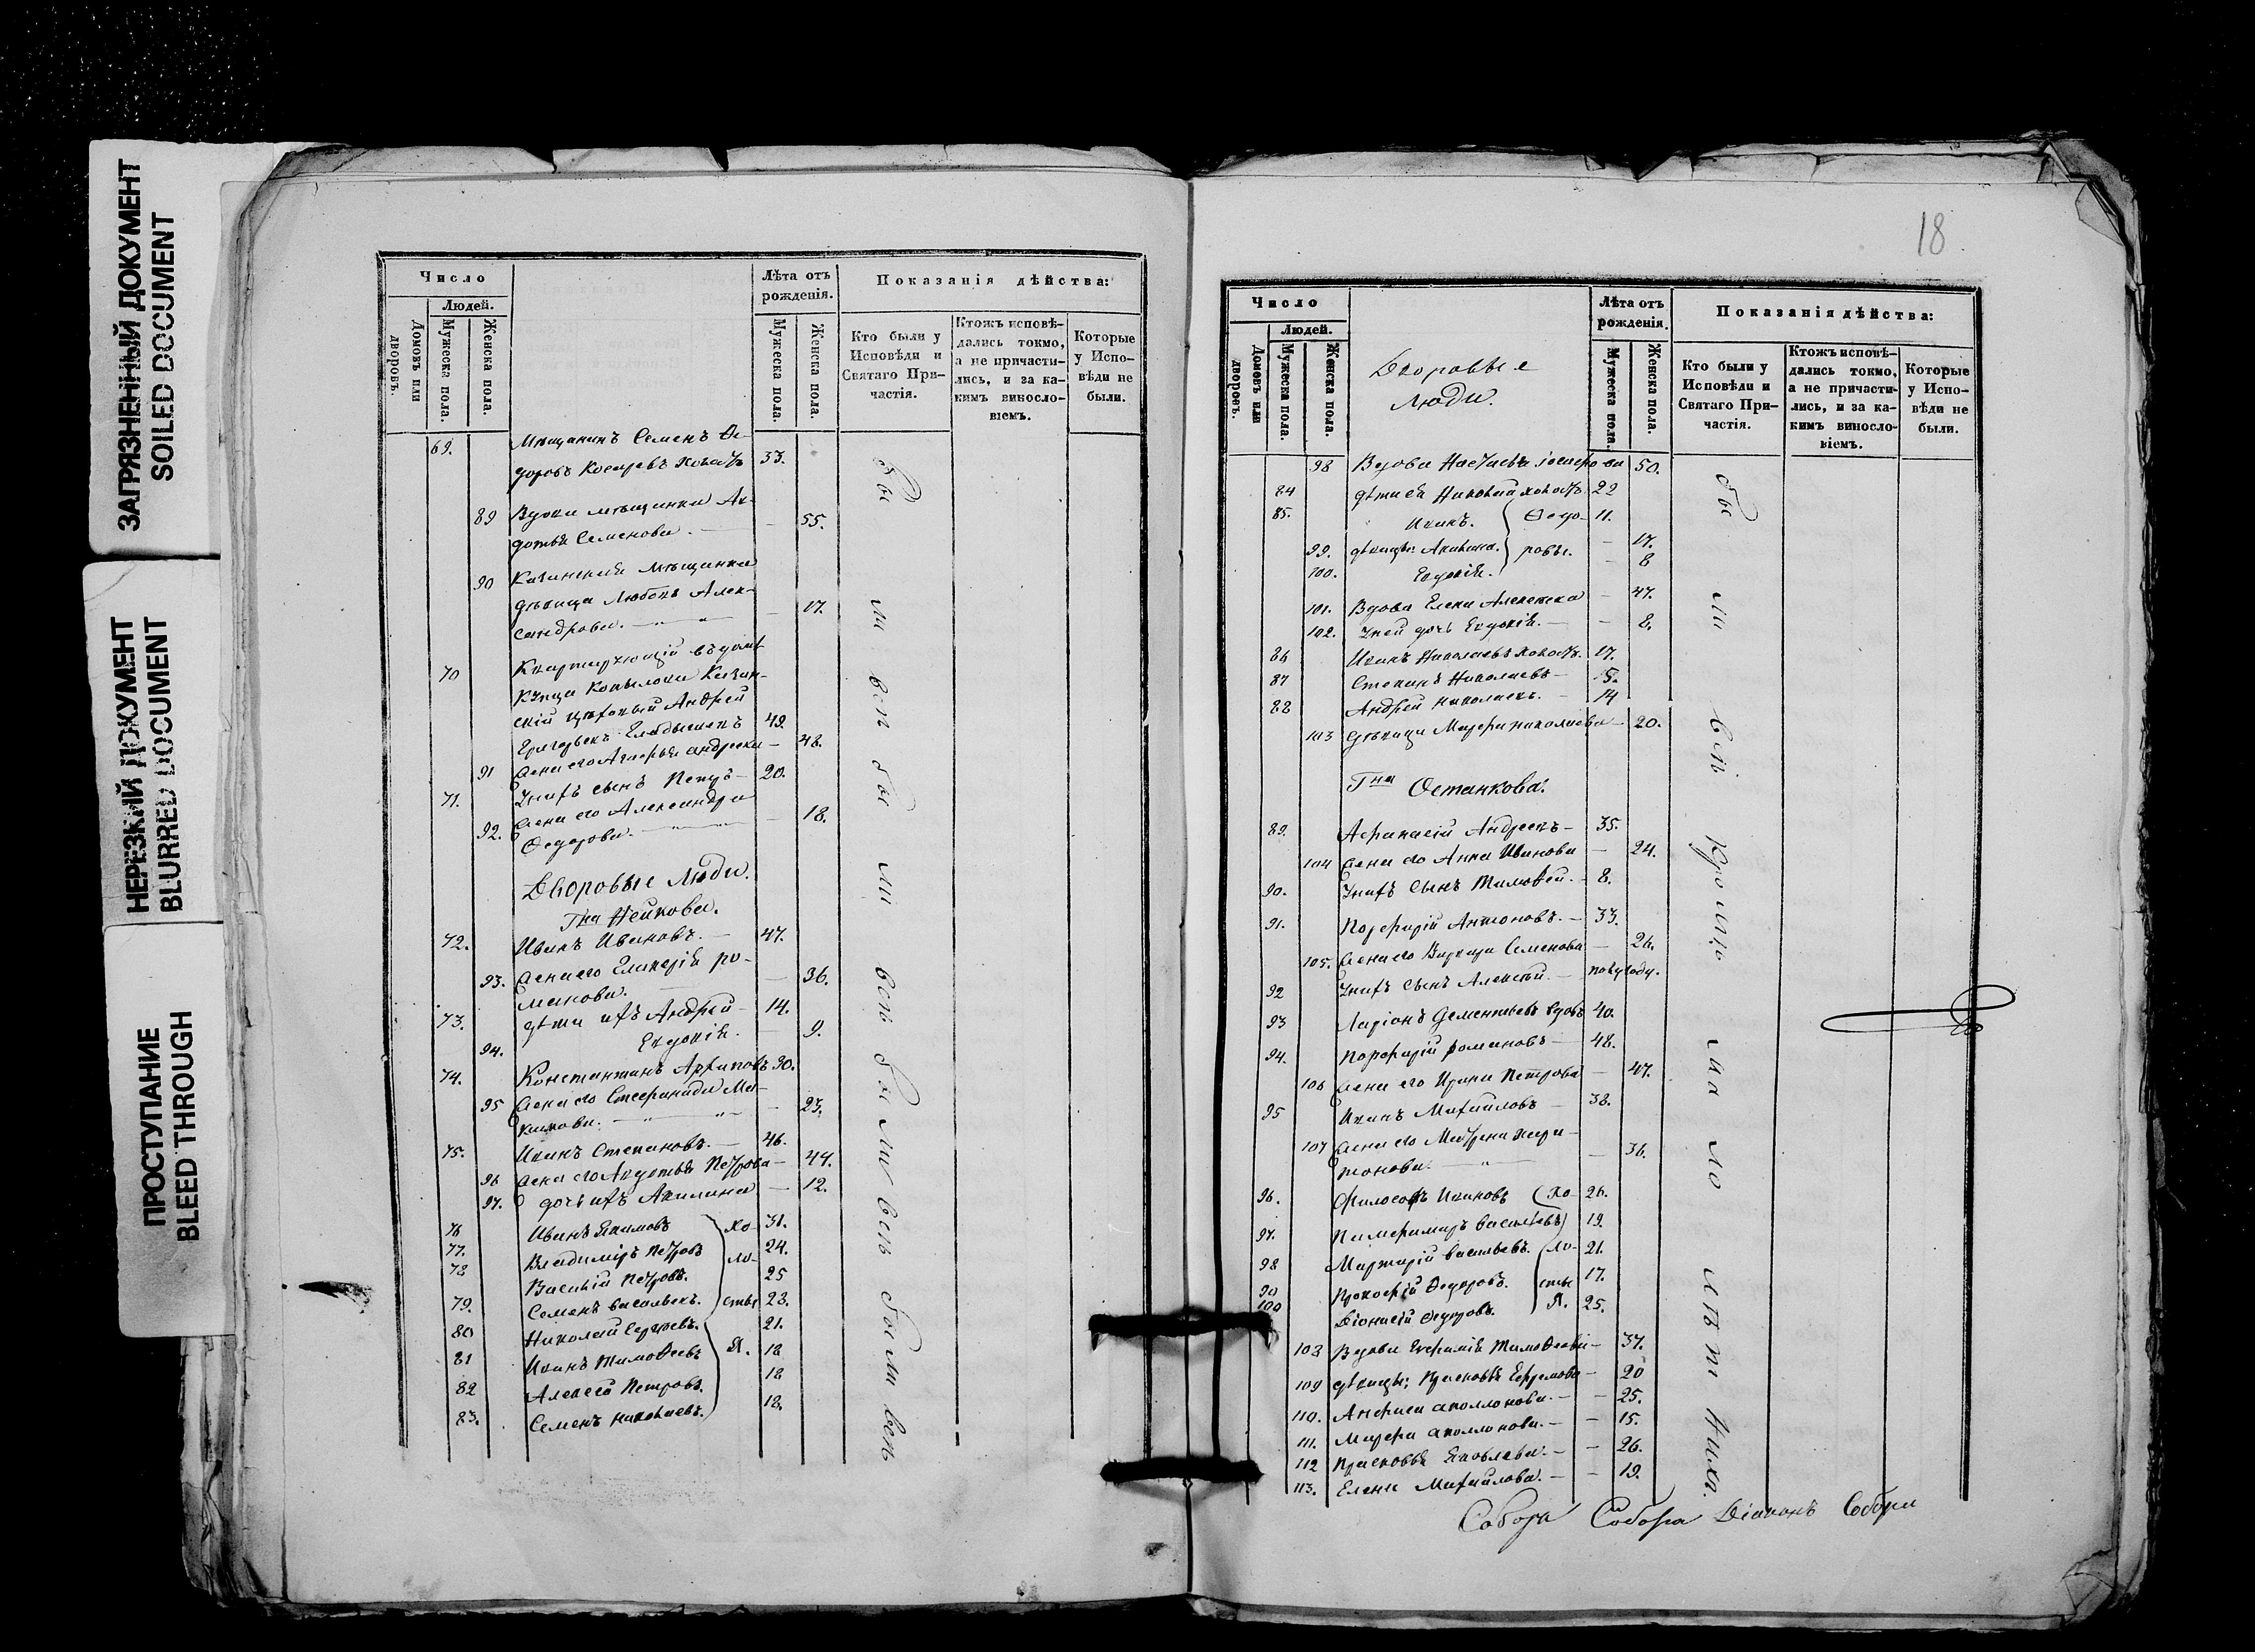 ЗАГРЯЗНЕННЫЙ ДОКУМЕНТ
SOILED DOCUMENT
НЕРЕЗКИЙ ДОКУМЕНТ
BLURRED DOCUMENT
ПРОСТУПАНИЕ
BLEED THROUGH
Число
Людей.
Домовъ или дворовъ.
Мужеска пола.
Женска пола.
Лѣта отъ рожденія.
Мужеска пола
Женска пола.
Показанія дѣйства:
Кто были у Исповѣди и Святаго Причастія.
Ктожъ исповѣдались токмо, а не причастились, и за какимъ винословіемъ.
Которые у Исповѣди не были.
69. Мѣщанинъ Семенъ Ѳе-
доровъ холостъ 33.
89 Вдова мѣщанка Ав-
дотья Семенова. 55.
90 Казанская мѣщанка
дѣвица Любовь Алек-
сандрова. 17.
70 Квартирующій въ домѣ
купца Копылова Казан-
скій цѣховый Андрей
Григорьевъ 49
91 Жена его Андреева 48.
71. У нихъ сынъ Петръ 20.
92. Жена его Александра
Ѳедорова. 18.
Дворовые люди.
Гна Нейкова.
72. Иванъ Ивановъ. 47.
93. Жена его Гликерія Ро-
манова. 36.
73. дѣти ихъ Андрей 14.
94. Евдокія. 9.
74. Константинъ Архиповъ 30.
95 Жена его Степанида Ма-
кимова. 23.
75. Иванъ Степановъ. 46.
96 Жена его Авдотья Петрова 44.
97. дочь ихъ Акилина 12.
76 Иванъ Якимовъ Хо- 31.
77. Владиміръ Петровъ ло- 24.
78 Василій Петровъ. 25
79. Семенъ Васильевъ. стые 23.
80 Николай Сергѣевъ. 21.
81 Иванъ Тимоѳеевъ Я. 18
82 Алексѣй Петровъ. 18
83. Семенъ Николаевъ. 18.
бы ли всѣ бы ли всѣ бы ли всѣ бы ли всѣ
18
Число
Людей.
Домовъ или дворовъ.
Мужеска пола.
Женска пола.
Дворовые
люди.
Лѣта отъ рожденія.
Мужеска пола.
Женска пола.
Показанія дѣйства:
Кто были у Исповѣди и Святаго Причастія.
Ктожъ исповѣдались токмо, а не причастились, и за какимъ винословіемъ.
Которые у Исповѣди не были.
98 Вдова Настасья 50.
84 дѣти ея Николай холостъ 22
85. Иванъ. Ѳедо- 11.
99. дѣвицы: Акилина. ровы. 17.
100. Евдокія. 8
101. Вдова Елена Алексѣева 47.
102. У ней дочь Евдокія. 8.
86 Иванъ Николаевъ холостъ. 17.
87 Степанъ Николаевъ 15.
88 Андрей Николаевъ. 14
103 Дѣвица Марфа Николаева 20.
Гна Останкова.
89. Афанасій Андреевъ 35.
104 Жена его Анна Иванова 24.
90. У нихъ сынъ Тимоѳей. 8.
91. Порфирій Антоновъ. 33.
105. Жена его Варвара Семенова 26.
92 У нихъ сынъ Алексѣй. полугоду.
93 Ларіонъ Дементьевъ вдовъ 40.
94. Порфирій Романовъ 48.
106 Жена его Ирина Петрова 47.
95 Иванъ Михайловъ 38.
107 Жена его Матрена Хари-
тонова. 36.
96. Философъ Ивановъ Хо- 26.
97. Васильевъ 19.
98 Мартирій Васильевъ. ло- 21.
99 Прокофій Ѳедоровъ. стые 17.
100 Діонисій Ѳедоровъ. Я. 25.
108 Вдова Евфимія Тимоѳеева 37.
109 дѣвицы: Прасковья Ефремова 20
110. Анфиса Аполлонова. 25.
111. Марфа Аполлонова. 15.
112 Прасковья Яковлева. 26.
113. Елена Михайлова. 19.
бы ли всѣ кромѣ ма ло лѣт них.
Собора Собора Діаконъ Собора